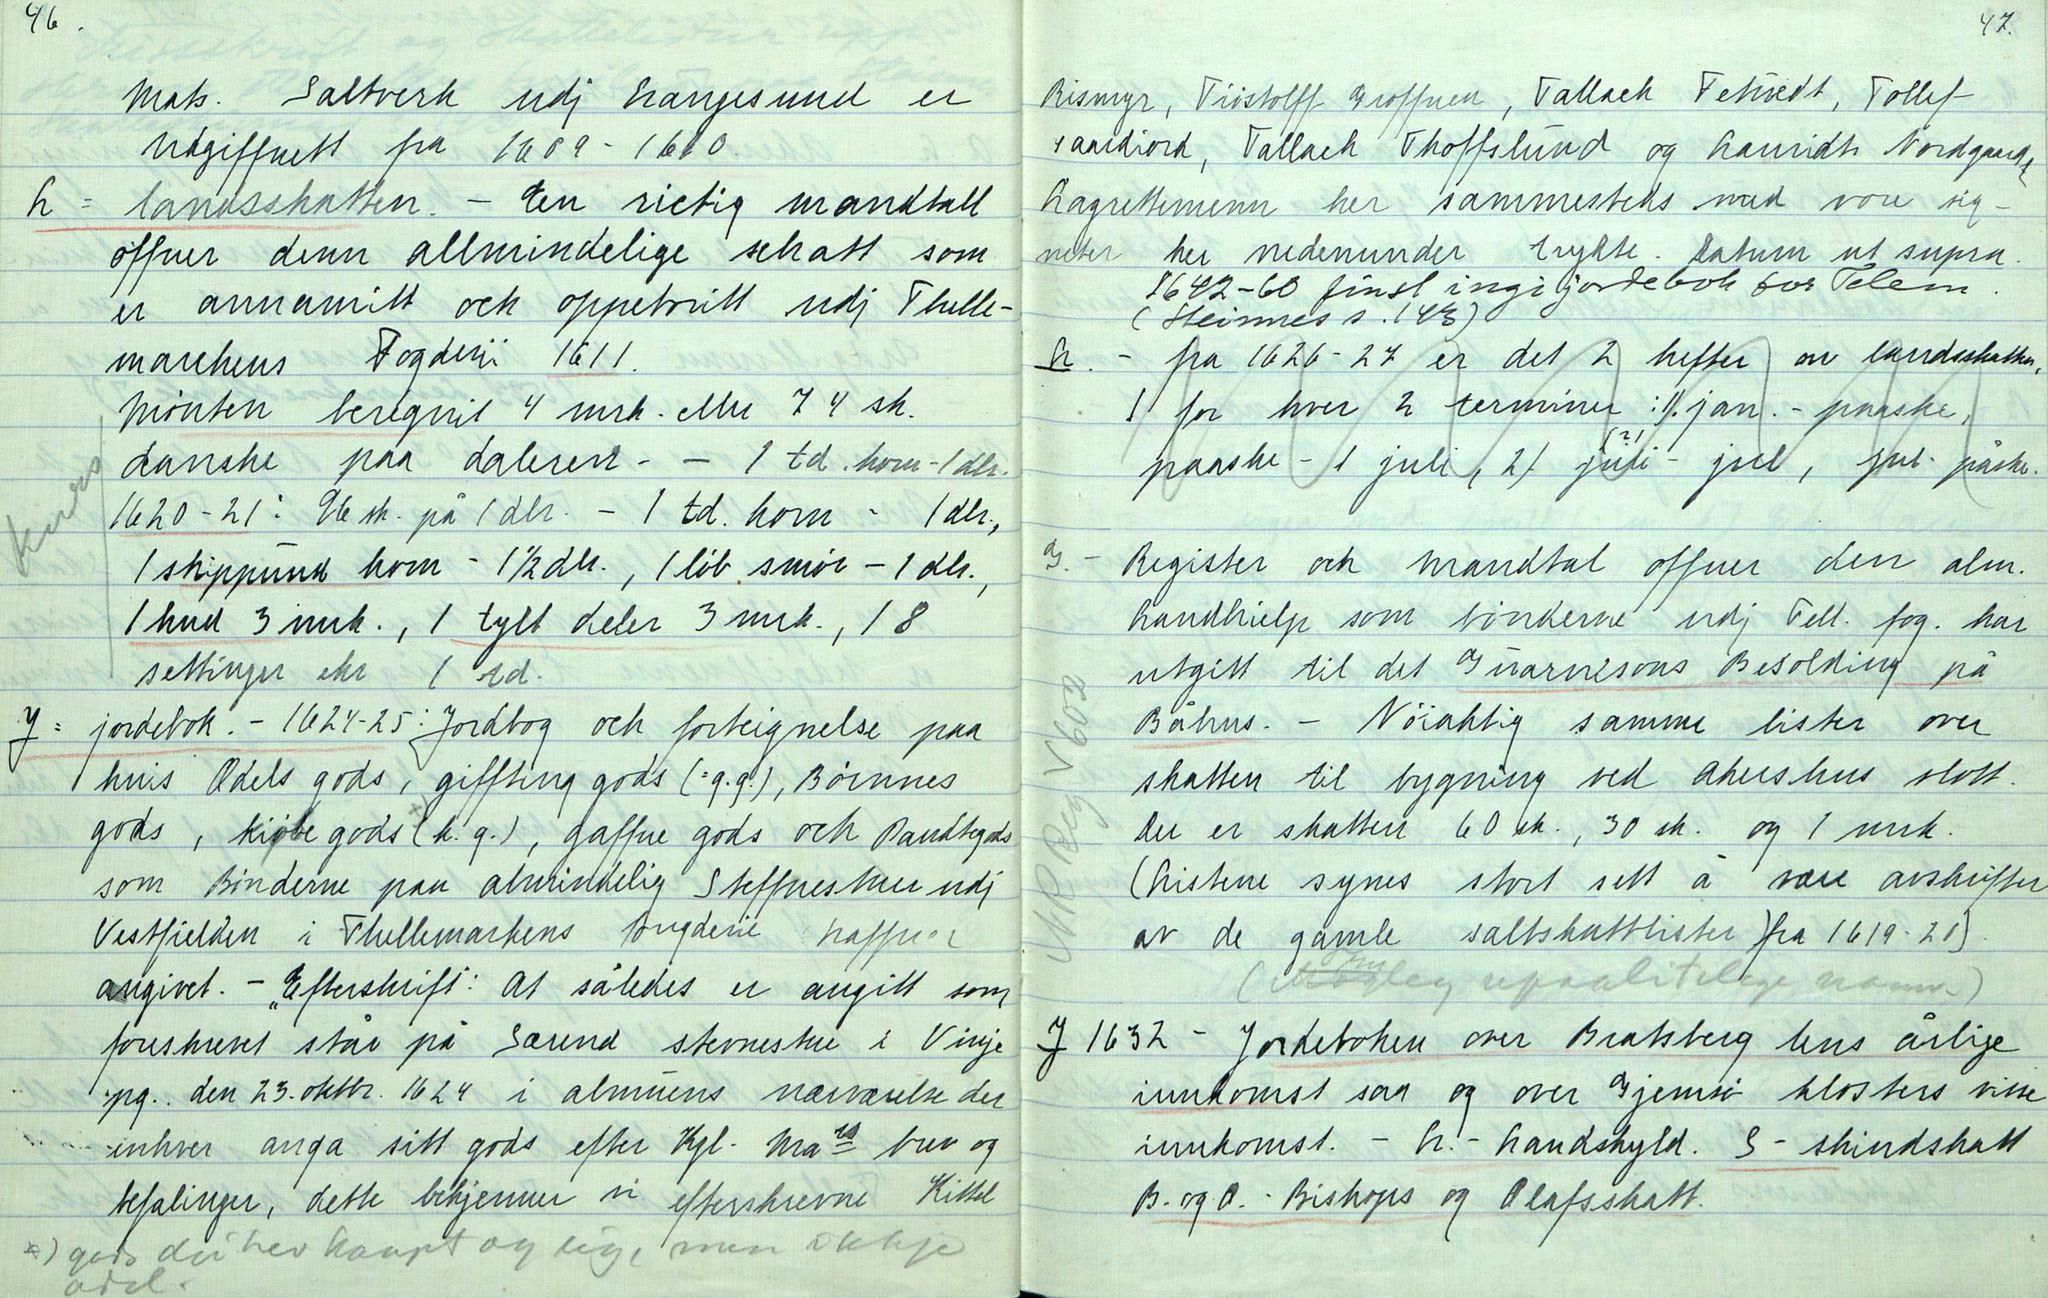 46.
Mats. Saltverk udj Langesund er
Udgiffuett fra 1609-1610.
L = landsskatten. - Een rictig mandtall
offuer denn allmindelige schatt som
er annamitt och oppeboritt udj Thelle-
marchens Fogderii 1611.
Mönten beregnit 4 mrk. eller 74 sk.
danske paa daleren - - 1 td. korn - 1 dlr.
1620-21: 96 sk. på 1 dlr. - 1 td. korn - 1 dlr.,
1 skippund korn - 1 1/2 dlr., 1 löb smör - 1 dlr.,
1 hud 3 mrk., 1 tylt deler 3 mrk., 18
settinger eller 1 td.
Kurs
J = jordebok. - 1624-25: Jordbog och forteignelse paa
huis Odels gods, giffting gods (=g.g.), Böinnes
gods, kiöbe gods x) (k.g.), gaffue gods och Pandtegods
som Bönderne paa almindelig Steffnestuer udj
Vestfielden i Thellemarkens fougderie haffuer
angivet. - "Efterskrift": At således er angitt som
foreskrevet står på Særend stevnestue i Vinje
pg. den 23. oktbr. 1624 i almuens nærværelse der
enhver anga sitt gods efter Kgl. Mats brev og
befalinger, dette bekjenner vi efterskrevne Kittel
x) gods dei hev kaupt og eige, men ikkje
odel.
47.
Rismyr, Tiöstolff Groffuen, Tallach Tetvedt, Tollef
Vaadiord, Tallach Thoffslund og Lauridts Nordgaarden
Lagrettemenn her sammesteds med vore sig-
neter her nedenunder trykte. Datum ut supra.
1642-60 finst ingi jordebok for Telem.
(Steinnes s. 143)
L. - fra 1626-27 er det 2 hefter av landsskatten,
1 for hver 2 terminer: 1/1. jan. - paaske,
paaske - 1 juli, 2) juli (?) - jul, jul - påske.
G. - Register och Mandtal offuer den alm.
Landhielp som bönderne udj Tell. fog. har
utgitt til det Guarnisons Besolding på
Båhus. - Nöiaktig samme lister over
skatten til bygning ved Akershus slott.
Der er skatten 60 sk., 30 sk. og 1 mrk.
(Listene synes stort sett å være avskrifter
av de gamle saltskattlister) fra 1619-21).
upaalitelege namn)
J 1632 - Jordeboken over Bratsberg lens årlige
innkomst saa og over Gjemsö klosters visse
innkomst. - L. - Landskyld. S - skindskatt
B. og O. - Bishops og Olafsskatt.